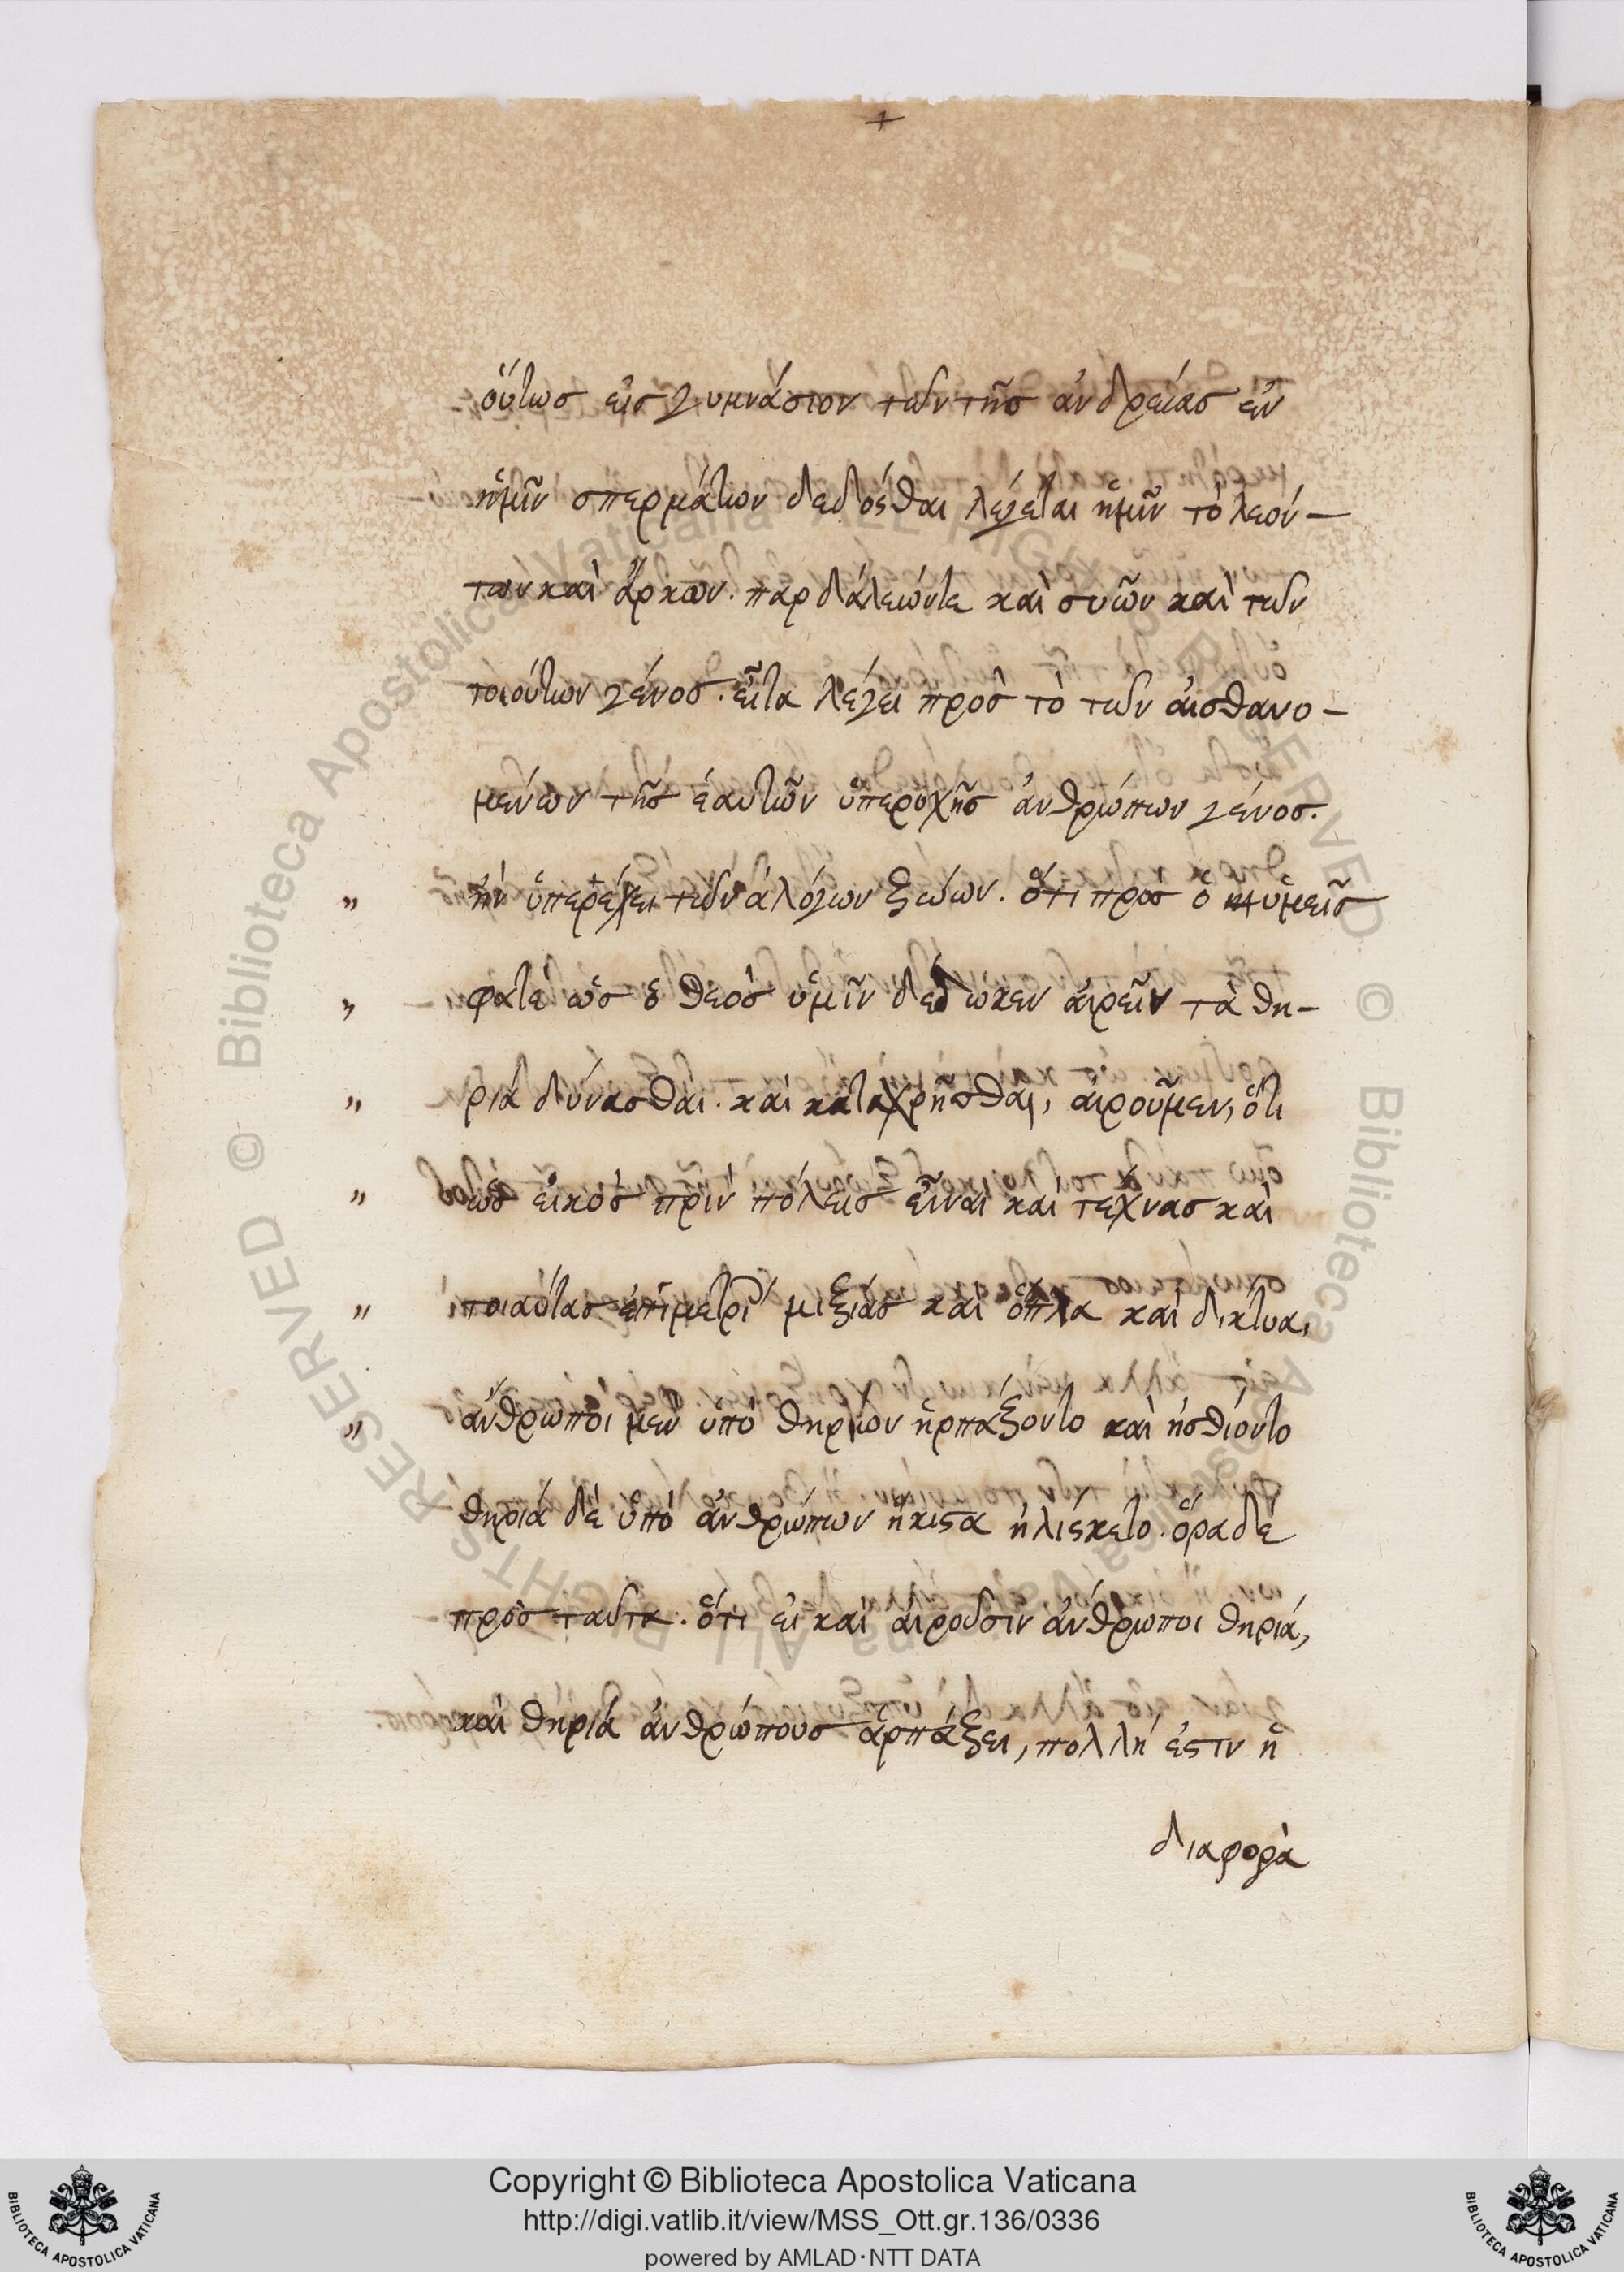 οὕτωσ εἰσ γυμνάσιον τῶν τῆσ ἀνδρείασ ἐν
ἡμῖν σπερμάτων δεδόσθαι λέγεται ἡμῖν τὸ λεόν-
των καὶ ἄρκων. παρδάλεών τε καὶ συῶν καὶ τῶν
τοιούτων γένοσ. εἶτα λέγει πρὸσ τὸ τῶν αἰσθανο-
μένων τῆσ ἑαυτῶν ὑπεροχῆσ ἀνθρώπων γένοσ.
„ ἣν ὑπερέχει τῶν ἀλόγων ζώων. ὅτι πρὸσ ὃ ὑμεῖσ
„ φατὲ ὡσ ὁ θεὸσ ὑμῖν δέδωκεν αἱρεῖν τὰ θη-
„ ρία δύνασθαι. καὶ καταχρῆσθαι, αἱροῦμεν, ὅτι
„ ὡσ εἰκὸσ πρὶν πόλεισ εἶναι καὶ τέχνασ καὶ
„ τοιαύτασ ἐπιμετρι μιξίασ καὶ ὅπλα καὶ δίκτυα,
„ ἄνθρωποι μὲν ὑπὸ θηρίον ἡρπάζοντο καὶ ἠσθίοντο
θηρία δὲ ὑπὸ ἀνθρώπων ἥκιστα ἡλίσκετο. ὅρα δὲ
πρὸσ ταῦτα. ὅτι εἰ καὶ αἱροῦσιν ἄνθρωποι θηρία,
καὶ θηρία ἀνθρώπουσ ἁρπάζει, πολλή ἐστιν ἡ
διαφορὰ
Copyright © Biblioteca Apostolica Vaticana
http://digi.vatlib.it/view/MSS_Ott.gr.136/0336
powered by AMLAD·NTT DATA
BIBLIOTECA APOSTOLICA VATICANA
BIBLIOTECA APOSTOLICA VATICANA
© Biblioteca Apostolica Vaticana ALL RIGHTS RESERVED
© Biblioteca Apostolica Vaticana ALL RIGHTS RESERVED